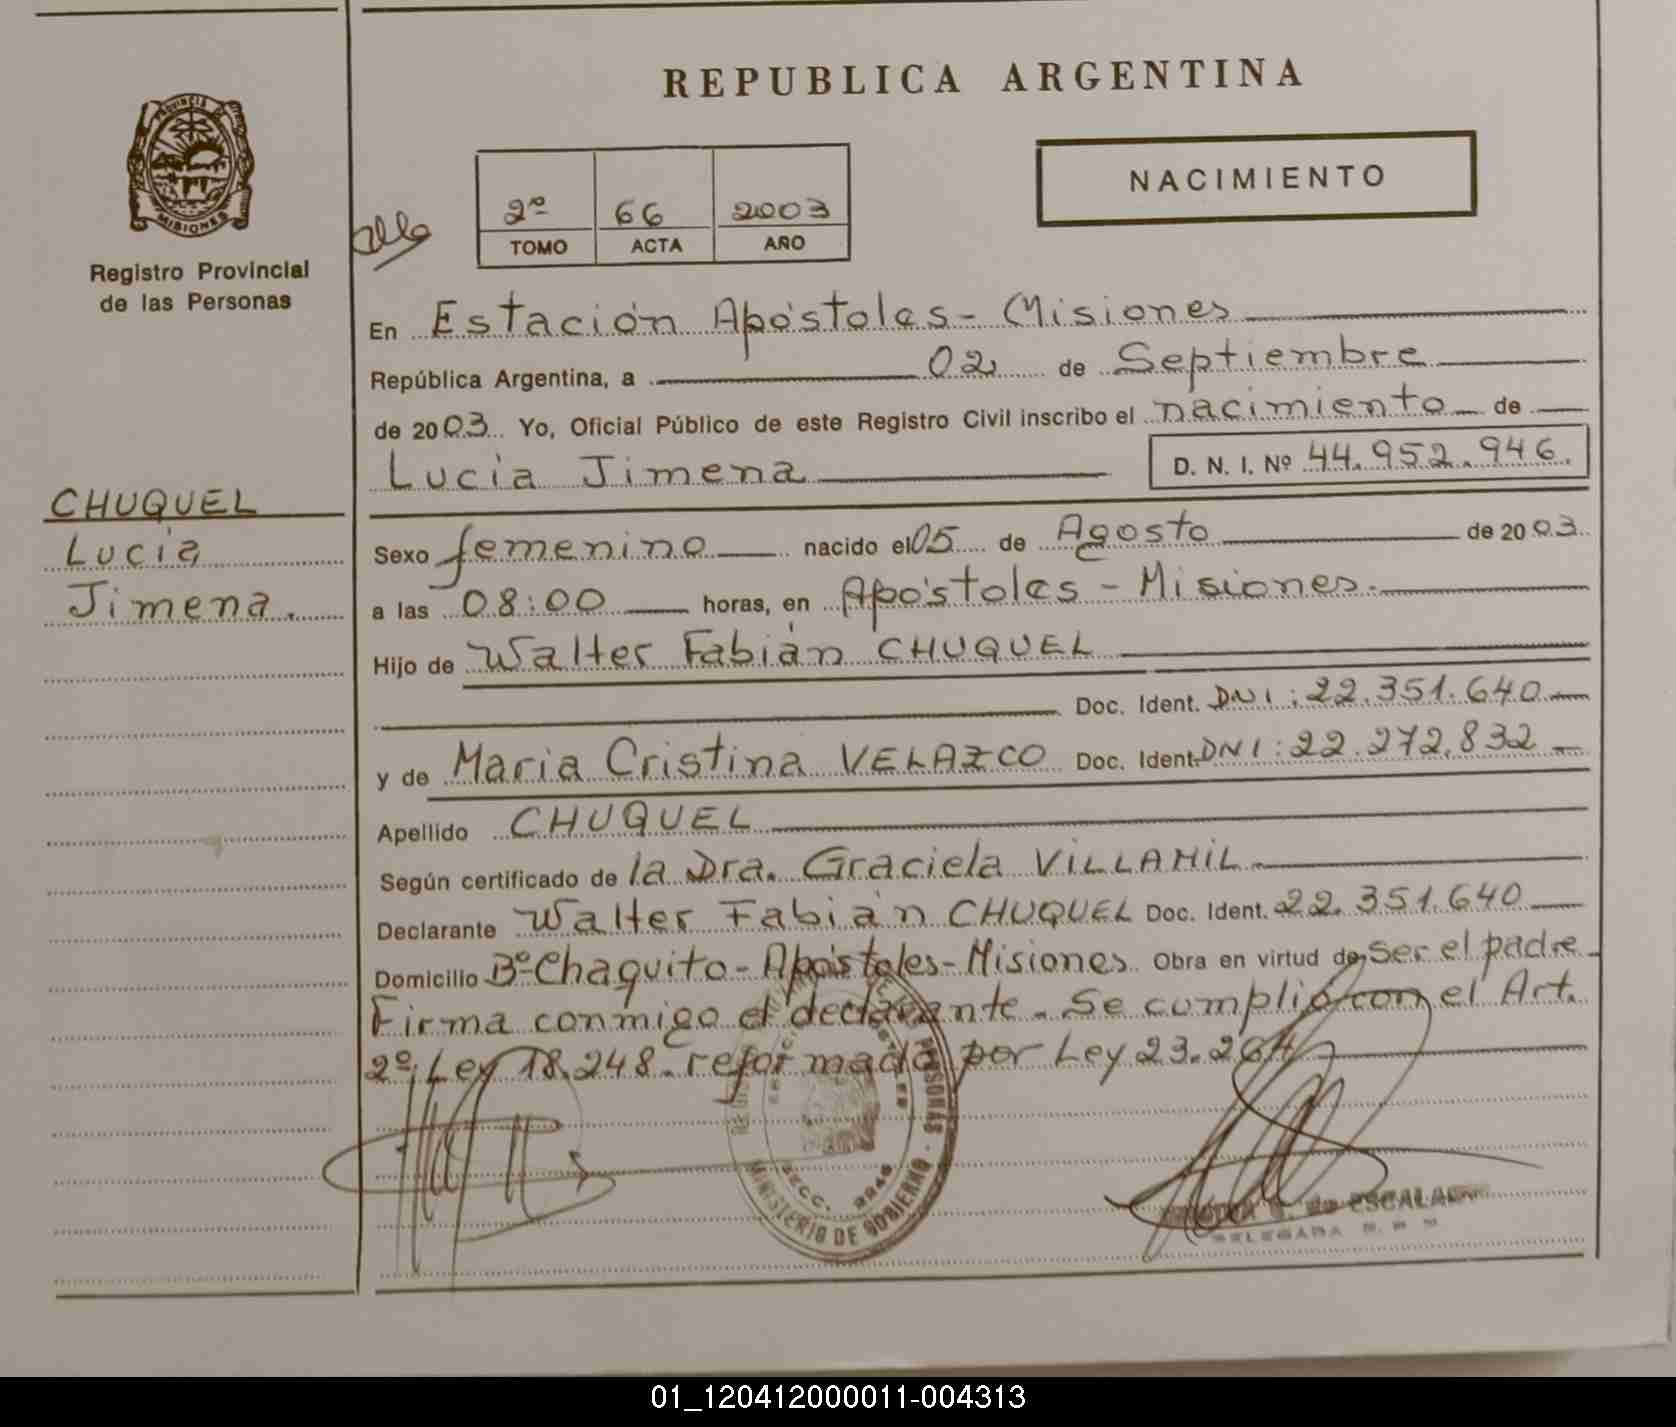 REPUBLICA ARGENTINA
PROVINCIA DE
MISIONES
Registro Provincial
de las Personas
NACIMIENTO
2º 66 2003
TOMO ACTA AÑO
En Estación Apóstoles - Misiones
República Argentina, a 02 de Septiembre
de 2003. Yo, Oficial Público de este Registro Civil inscribo el nacimiento de
Lucia Jimena D. N. I. Nº 44.952.946.
CHUQUEL
Lucia
Jimena.
Sexo femenino nacido el 05 de Agosto de 2003.
a las 08:00 horas, en Apóstoles - Misiones.
Hijo de Walter Fabián CHUQUEL
Doc. Ident. DNI: 22.351.640
y de Maria Cristina VELAZCO Doc. Ident. DNI: 22.272.832
Apellido CHUQUEL
Según certificado de la Dra. Graciela VILLAMIL
Declarante Walter Fabián CHUQUEL Doc. Ident. 22.351.640
Domicilio Bº Chaquito - Apóstoles - Misiones. Obra en virtud de ser el padre
Firma conmigo el declarante. Se cumplió con el Art.
2º, Ley 18.248. reformada por Ley 23.264
PERSONAS
MINISTERIO DE GOBIERNO
SECC.
de ESCALA
DELEGADA
01_120412000011-004313